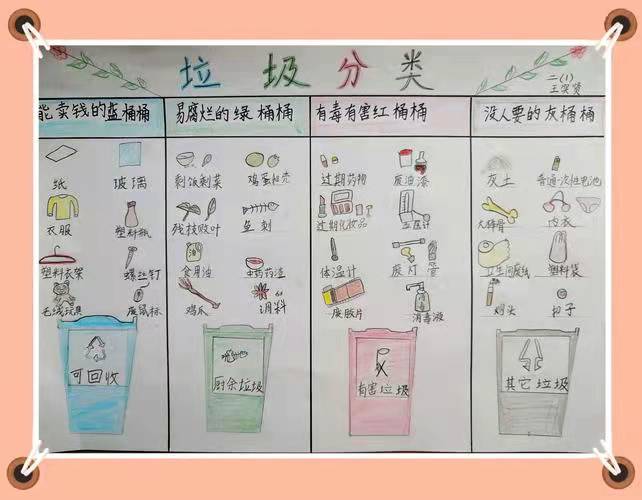 垃圾分类
二(1)
能卖钱的蓝桶桶
易腐烂的绿桶桶
有毒有害红桶桶
没人要的灰桶桶
纸
玻璃
衣服
塑料瓶
塑料衣架
螺丝钉
毛绒玩具
废鼠标
可回收
剩饭剩菜
鸡蛋壳
残枝败叶
鱼刺
食用油
中药药渣
鸡爪
调料
厨余垃圾
过期药物
废油漆
过期化妆品
血压计
体温计
废灯管
废胶片
消毒液
有害垃圾
灰土
普通一次性电池
大棒骨
内衣
卫生间废纸
塑料袋
烟头
扣子
其它垃圾